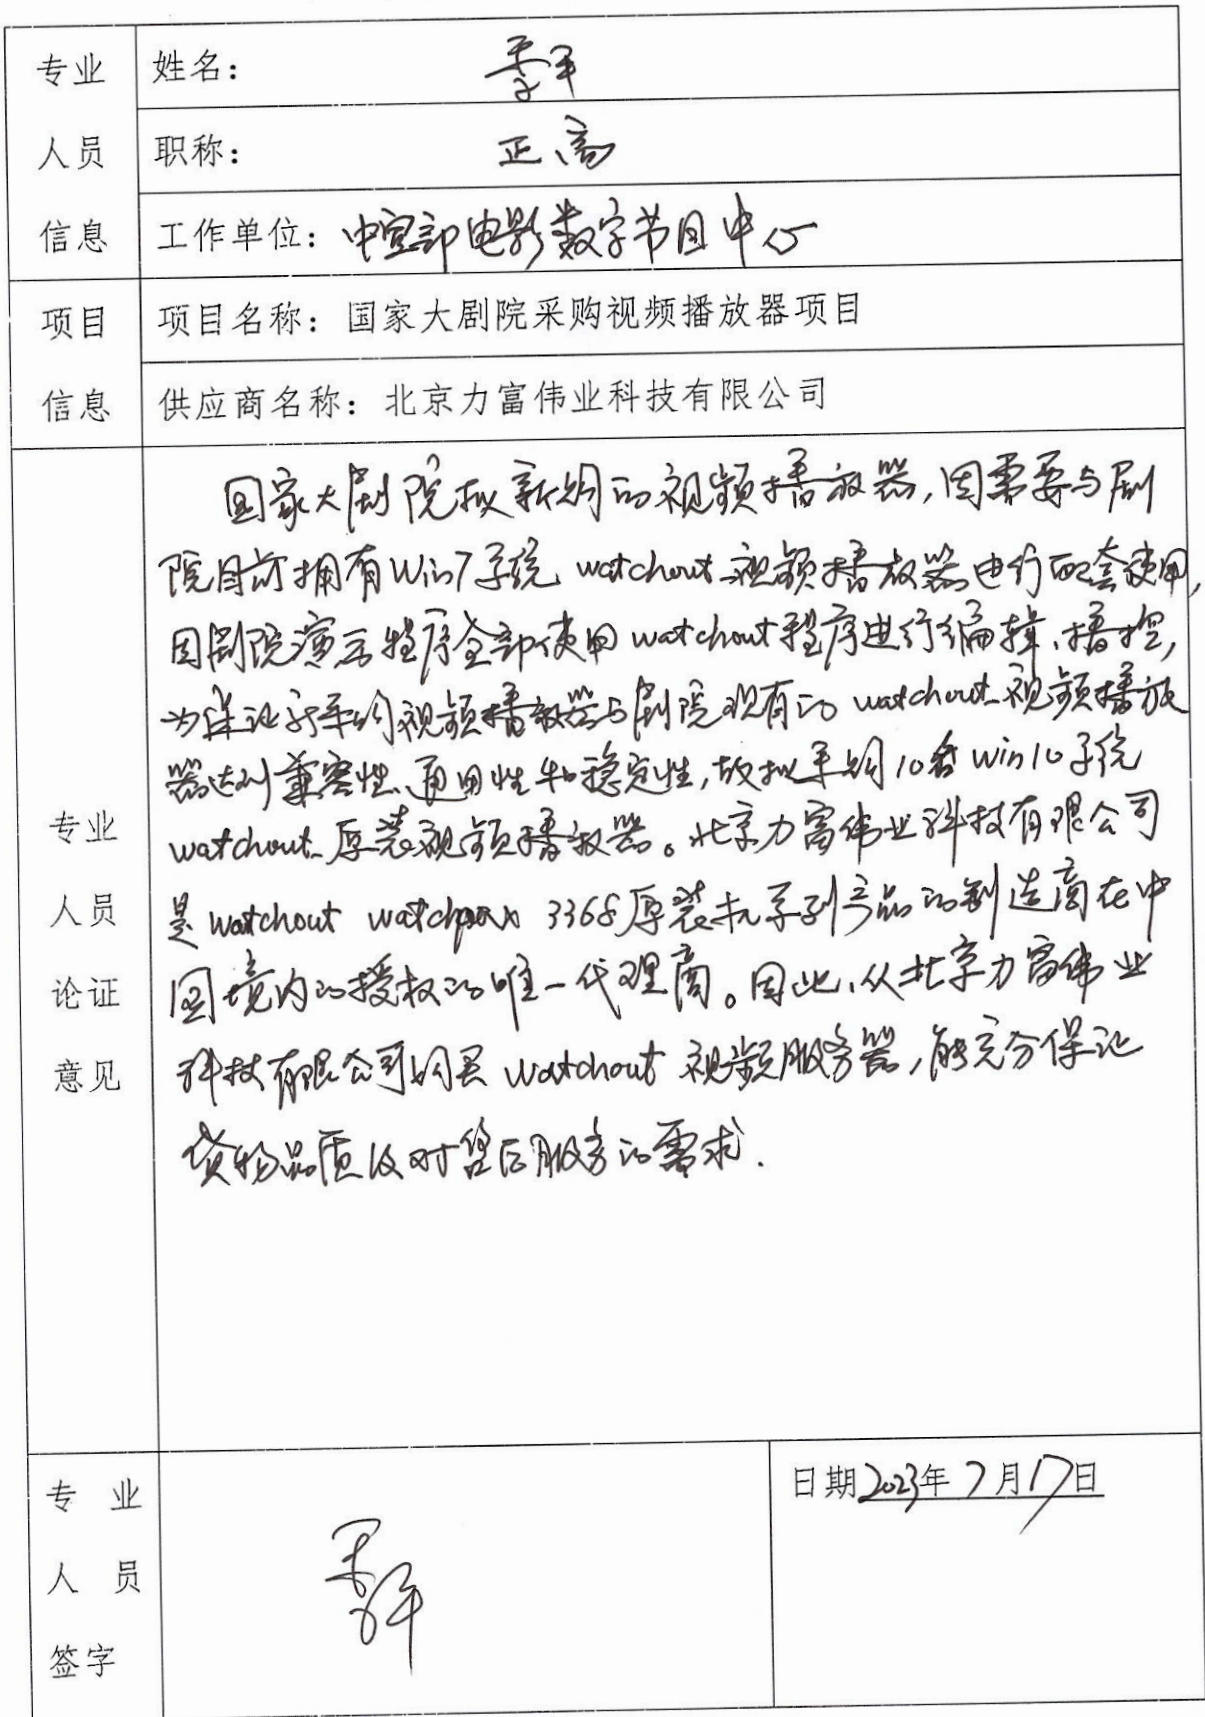 专业
人员
信息
姓名：
职称：正高
工作单位：中宣部电影数字节目中心
项目
信息
项目名称：国家大剧院采购视频播放器项目
供应商名称：北京力富伟业科技有限公司
专业
人员
论证
意见
国家大剧院拟新购的视频播放器，因需要与剧
院目前拥有Win7系统 watchout视频播放器进行配套使用，
因剧院演示程序全部使用watchout程序进行编辑、播控，
为保证新采购视频播放器与剧院现有的watchout视频播放
器达到兼容性、通用性和稳定性，故拟采购10台Win10系统
watchout原装视频播放器。北京力富伟业科技有限公司
是watchout watchpax 3368原装机系列产品的制造商在中
国境内的授权的唯一代理商。因此，从北京力富伟业
科技有限公司购买 watchout 视频服务器，能充分保证
货物品质及对售后服务的需求.
专 业
人 员
签字
日期2023年7月17日